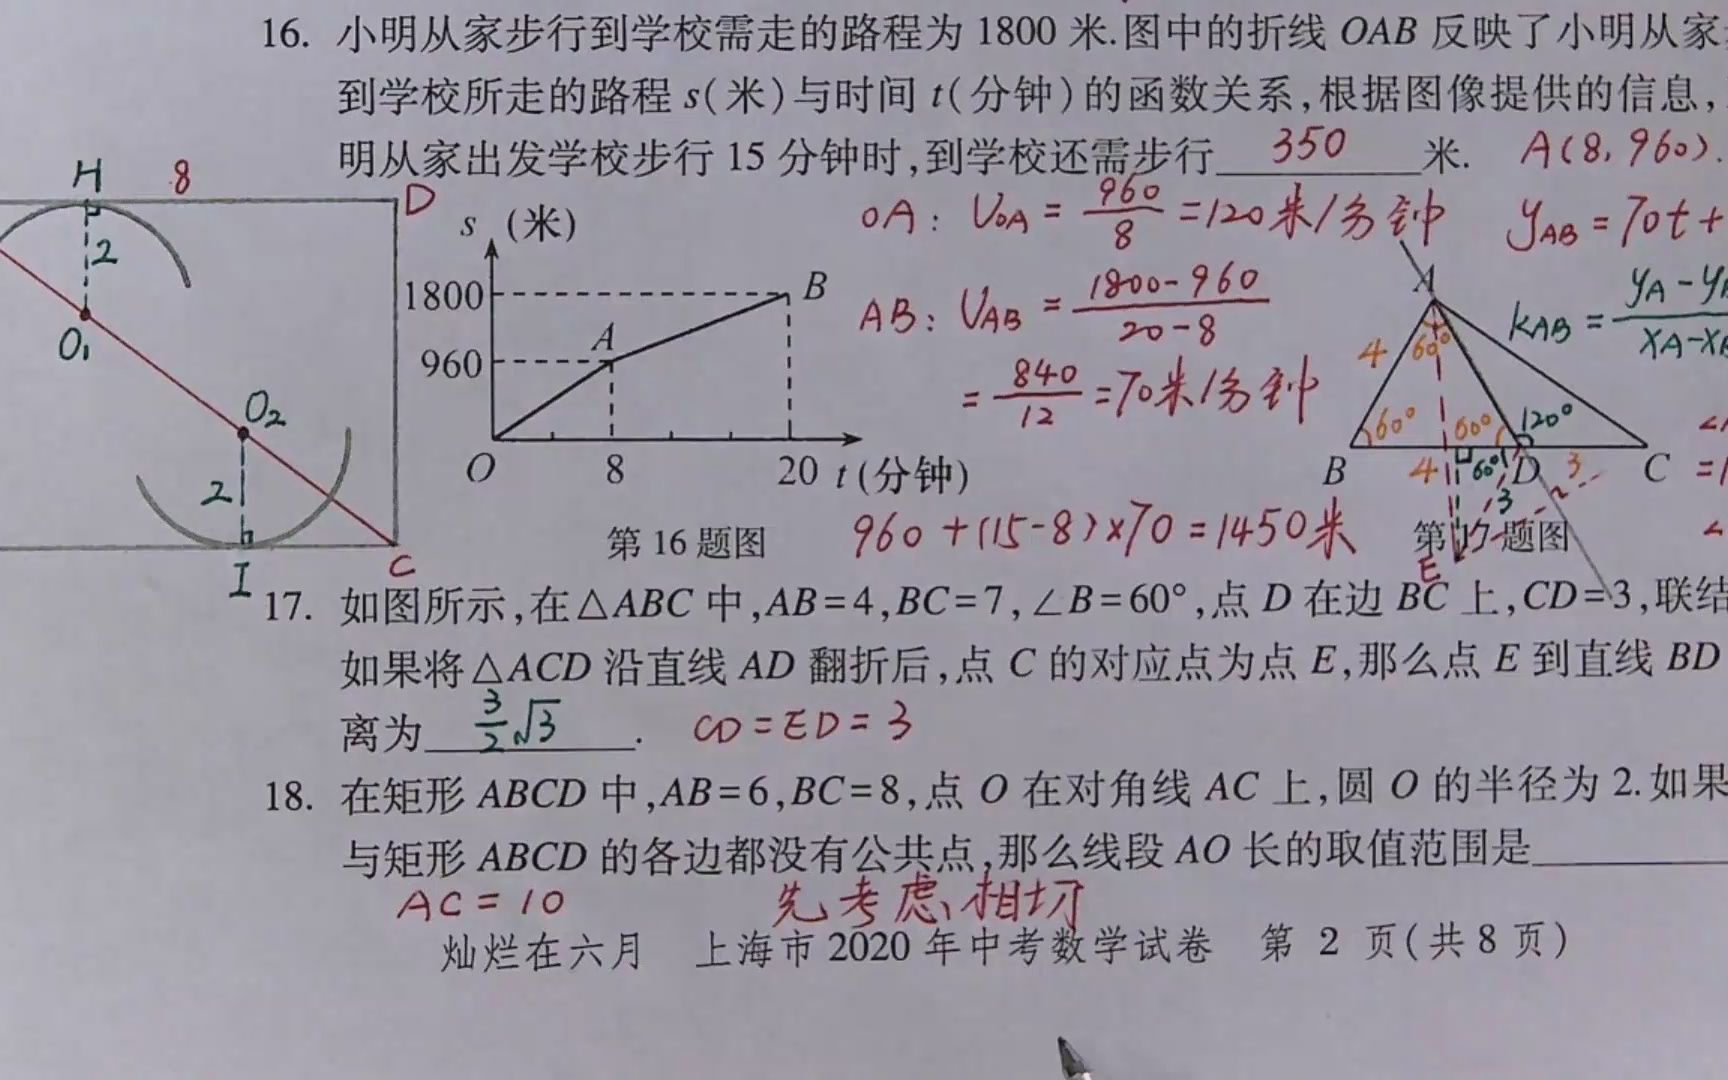 16. 小明从家步行到学校需走的路程为 1800 米.图中的折线 OAB 反映了小明从家
到学校所走的路程 s(米)与时间 t(分钟)的函数关系,根据图像提供的信息,
明从家出发学校步行 15 分钟时,到学校还需步行 350 米. A(8, 960).
H 8 D
2
O₁
O₂
2
I C
s (米)
1800 B
960 A
O 8 20 t(分钟)
第 16 题图
OA: VOA = 960/8 = 120米/分钟 yAB = 70t +
AB: VAB = 1800-960/20-8
= 840/12 = 70米/分钟
960 + (15-8)×70 = 1450米
kAB = yA - y/xA - x
A
4 60°
60° 60° 120°
B 4 60° D 3 C
3
E
第 17 题图
17. 如图所示,在△ABC 中,AB=4,BC=7,∠B=60°,点 D 在边 BC 上,CD=3,联结
如果将△ACD 沿直线 AD 翻折后,点 C 的对应点为点 E,那么点 E 到直线 BD
离为 3/2√3 . CD = ED = 3
18. 在矩形 ABCD 中,AB=6,BC=8,点 O 在对角线 AC 上,圆 O 的半径为 2.如果
与矩形 ABCD 的各边都没有公共点,那么线段 AO 长的取值范围是
AC = 10 先考虑相切
灿烂在六月 上海市 2020 年中考数学试卷 第 2 页(共 8 页)